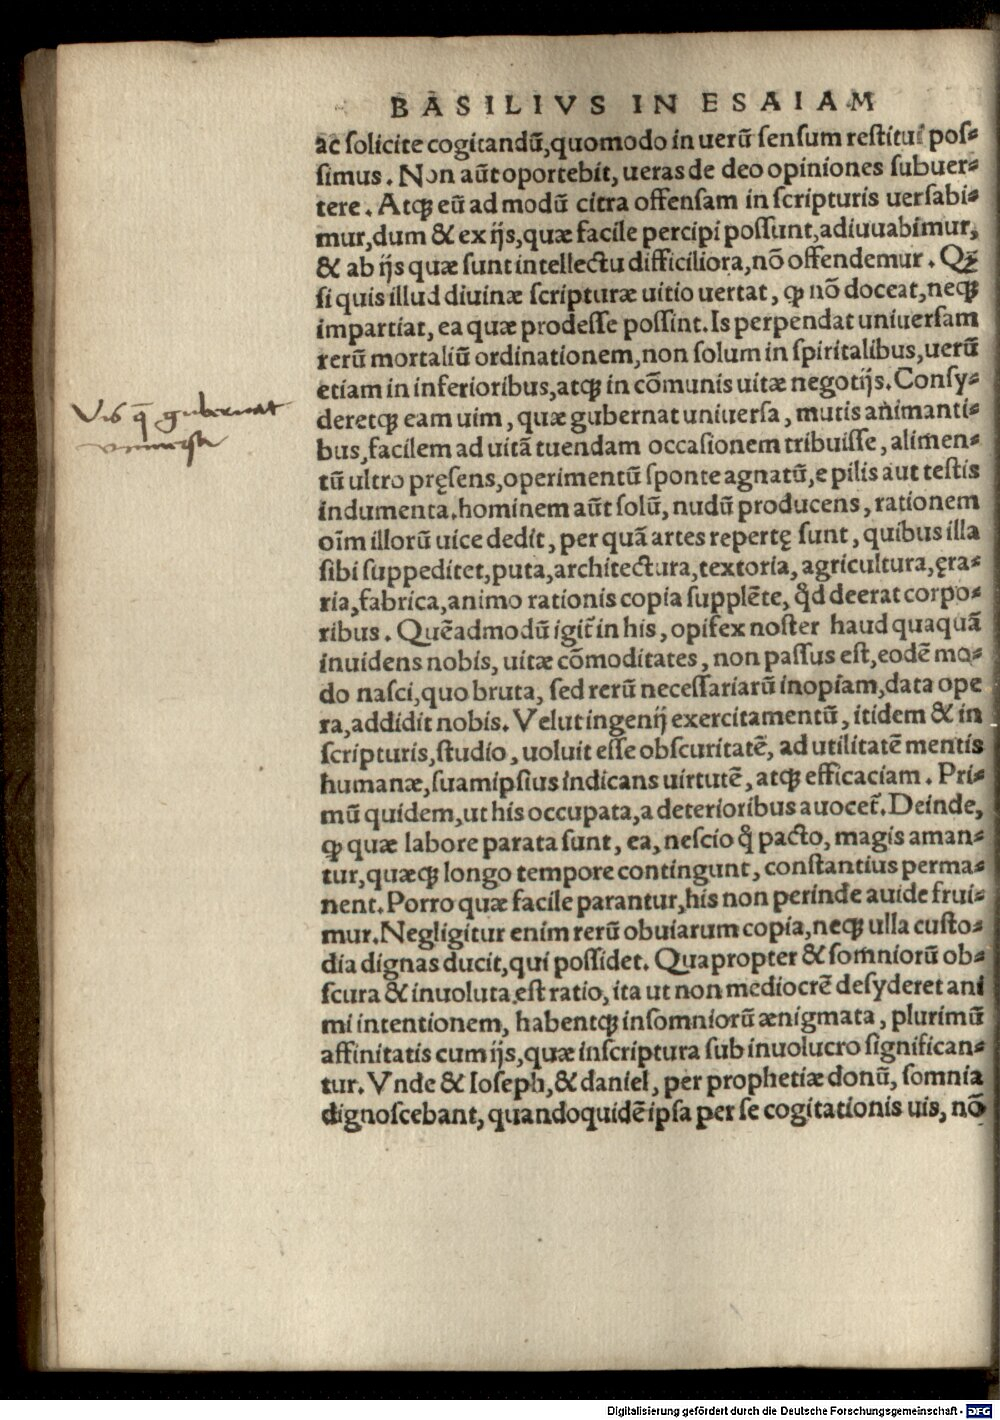 BASILIVS IN ESAIAM
ac solicite cogitandū, quomodo in uerū sensum restitui pos⸗
simus. Non aūt oportebit, ueras de deo opiniones subuer⸗
tere. Atqꝫ eū ad modū citra offensam in scripturis uersabi⸗
mur, dum & ex ijs, quæ facile percipi possunt, adiuuabimur,
& ab ijs quæ sunt intellectu difficiliora, nō offendemur. Qꝫ
si quis illud diuinæ scripturæ uitio uertat, ꝙ nō doceat, neqꝫ
impartiat, ea quæ prodesse possint. Is perpendat uniuersam
rerū mortaliū ordinationem, non solum in spiritalibus, uerū
etiam in inferioribus, atqꝫ in cōmunis uitæ negotijs. Consy⸗
Vis q̄ gubernat
vniuersa
deretqꝫ eam uim, quæ gubernat uniuersa, mutis animanti⸗
bus, facilem ad uitā tuendam occasionem tribuisse, alimen⸗
tū ultro pręsens, operimentū sponte agnatū, e pilis aut testis
indumenta. hominem aūt solū, nudū producens, rationem
oīm illorū uice dedit, per quā artes repertę sunt, quibus illa
sibi suppeditet, puta, architectura, textoria, agricultura, ęra⸗
ria, fabrica, animo rationis copia supplēte, qd̛ deerat corpo⸗
ribus. Quēadmodū igit̃ in his, opifex noster haud quaquā
inuidens nobis, uitæ cōmoditates, non passus est, eodē mo⸗
do nasci, quo bruta, sed rerū necessariarū inopiam, data ope
ra, addidit nobis. Velut ingenij exercitamentū, itidem & in
scripturis, studio, uoluit esse obscuritatē, ad utilitatē mentis
humanæ, suamipsius indicans uirtutē, atqꝫ efficaciam. Pri⸗
mū quidem, ut his occupata, a deterioribus auocet̃. Deinde,
ꝙ quæ labore parata sunt, ea, nescio q̊ pacto, magis aman⸗
tur, quæqꝫ longo tempore contingunt, constantius perma⸗
nent. Porro quæ facile parantur, his non perinde auide frui⸗
mur. Negligitur enim rerū obuiarum copia, neqꝫ ulla custo⸗
dia dignas ducit, qui possidet. Quapropter & somniorū ob⸗
scura & inuoluta est ratio, ita ut non mediocrē desyderet ani
mi intentionem, habentqꝫ insomniorū ænigmata, plurimū
affinitatis cum ijs, quæ inscriptura sub inuolucro significan⸗
tur. Vnde & Ioseph, & daniel, per prophetiæ donū, somnia
dignoscebant, quandoquidē ipsa per se cogitationis uis, nō
Digitalisierung gefördert durch die Deutsche Forschungsgemeinschaft - DFG